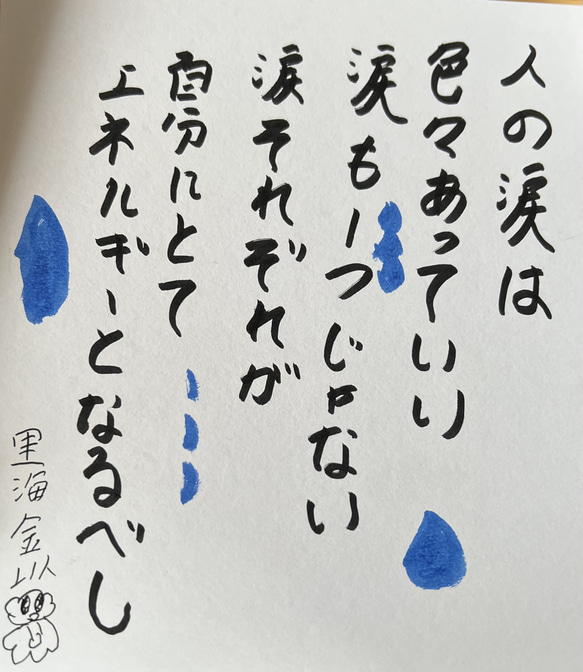 人の涙は
色々あっていい
涙も一つじゃない
涙それぞれが
自分にとて
エネルギーとなるべし
里海金